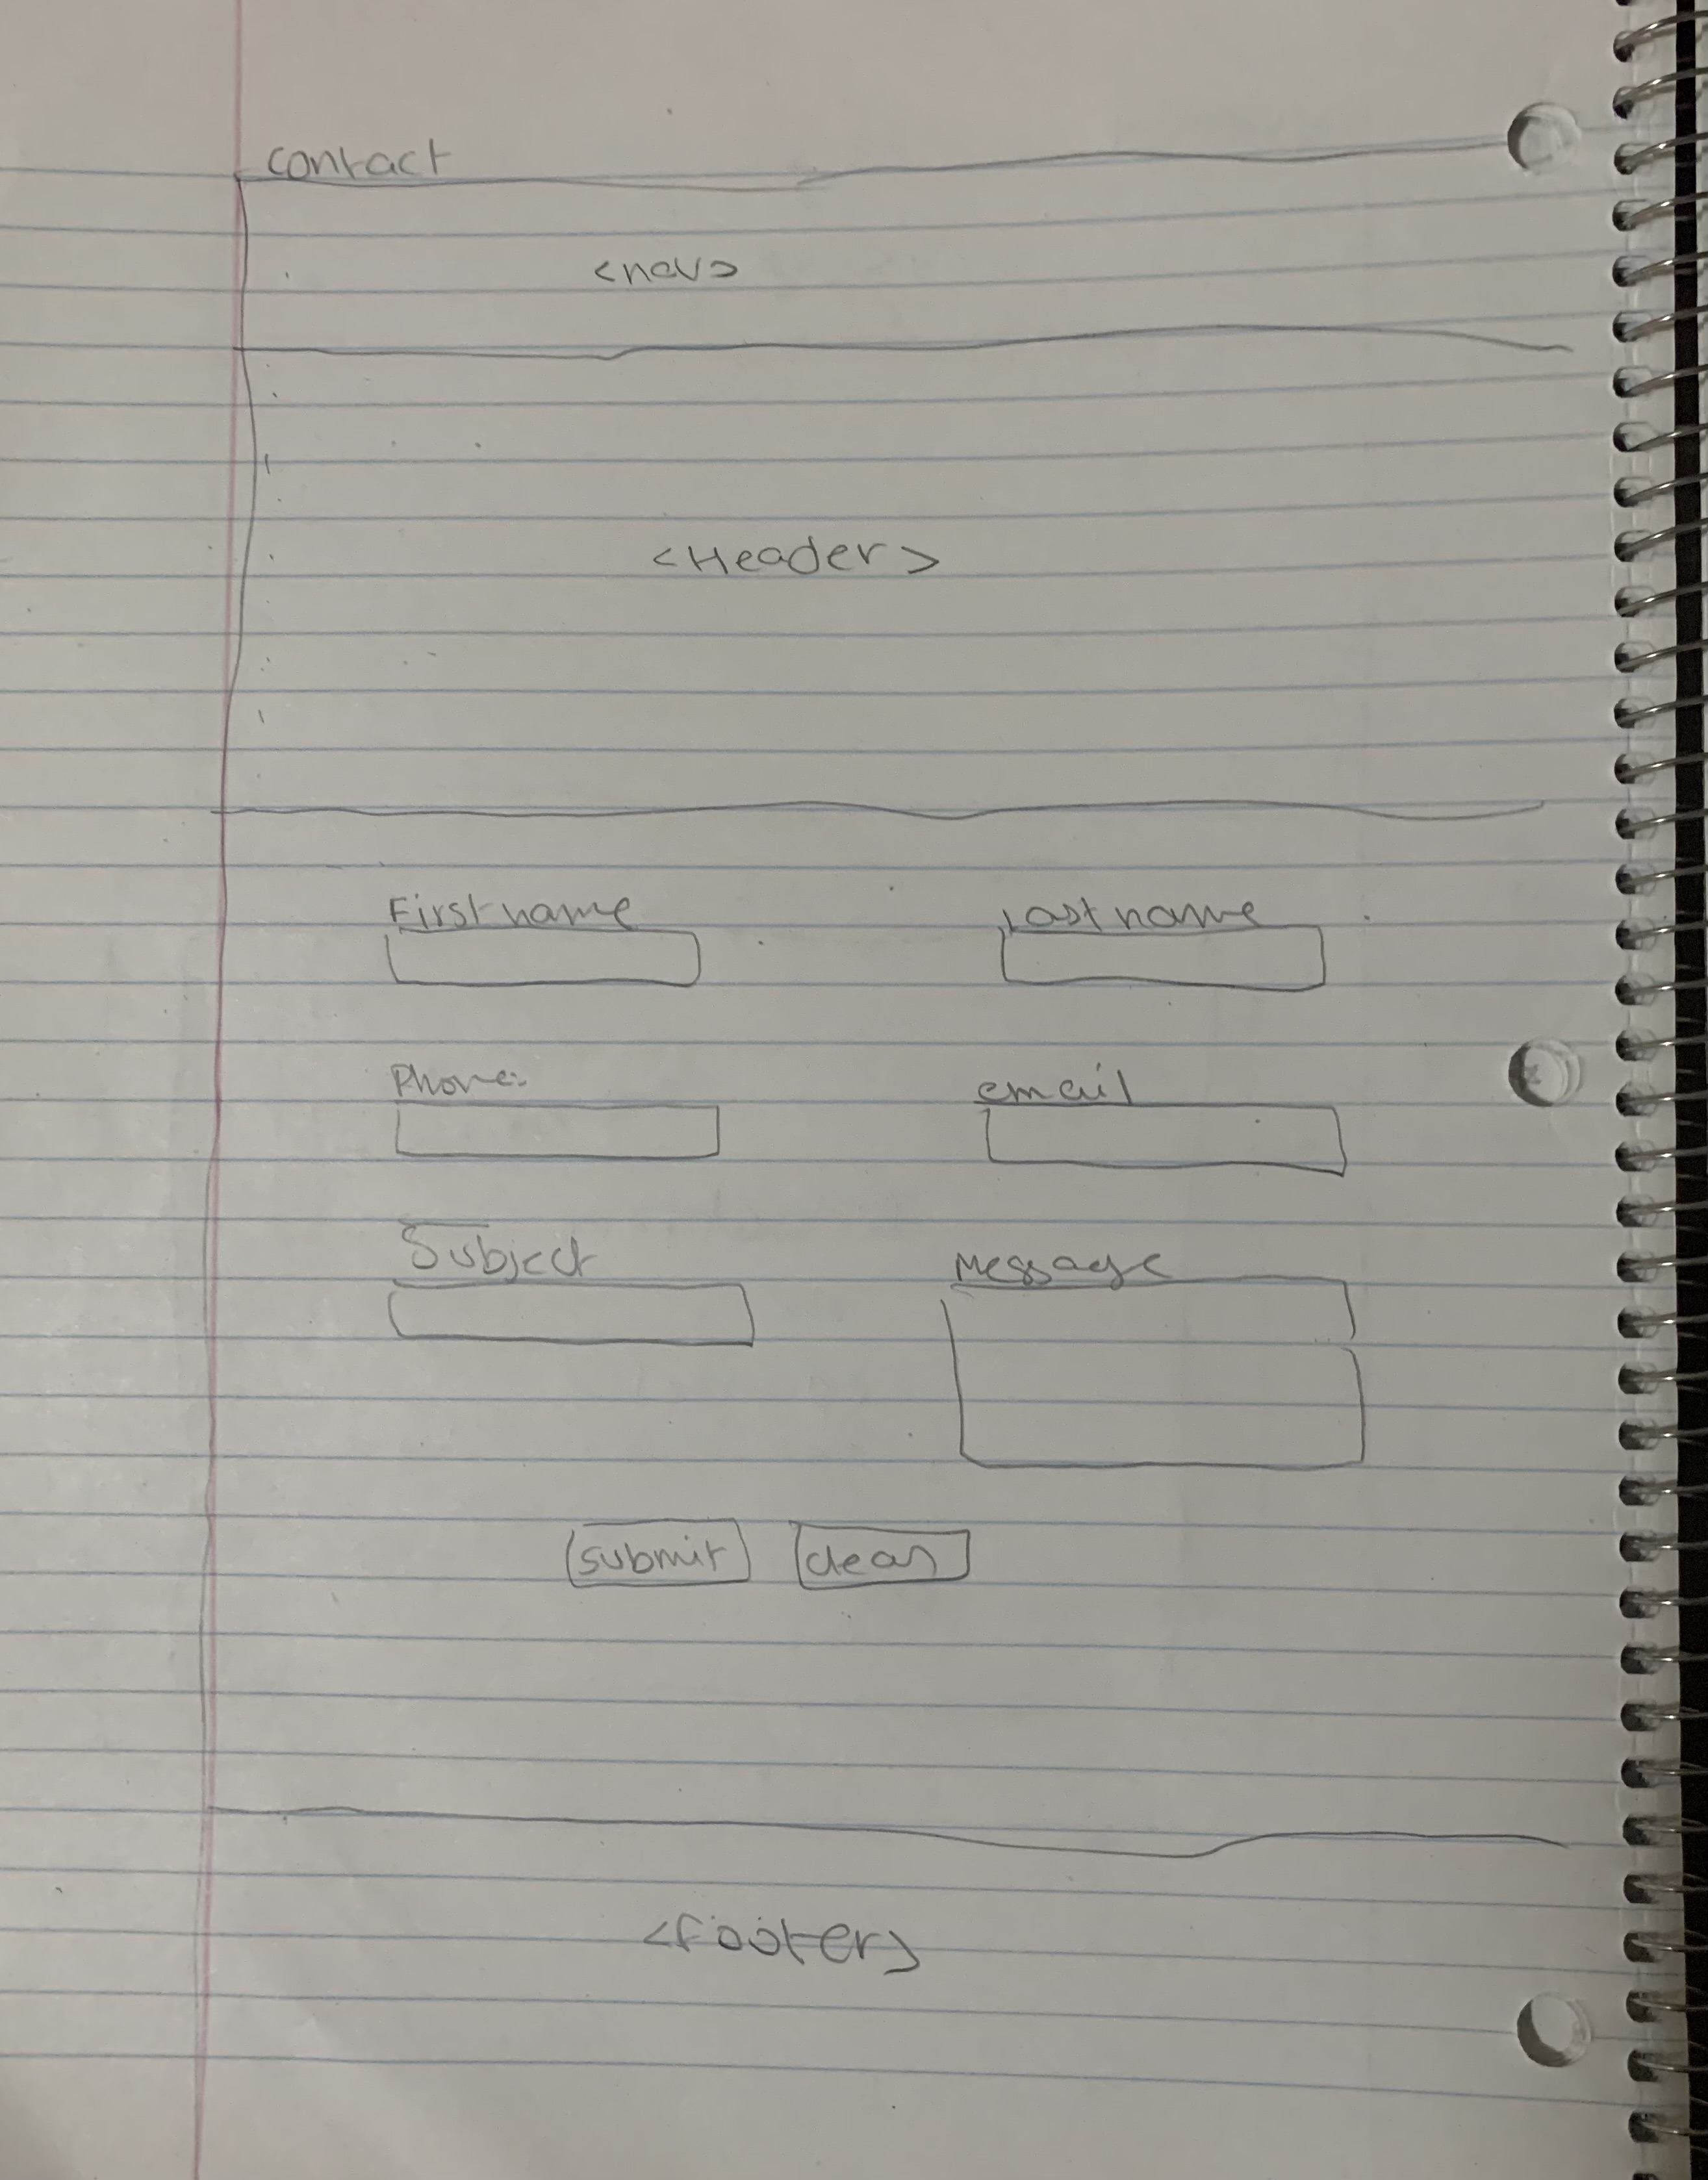 contact
<nav>
<Header>
First name
Last name
Phone:
email
Subject
Message
submit
clear
<footer>